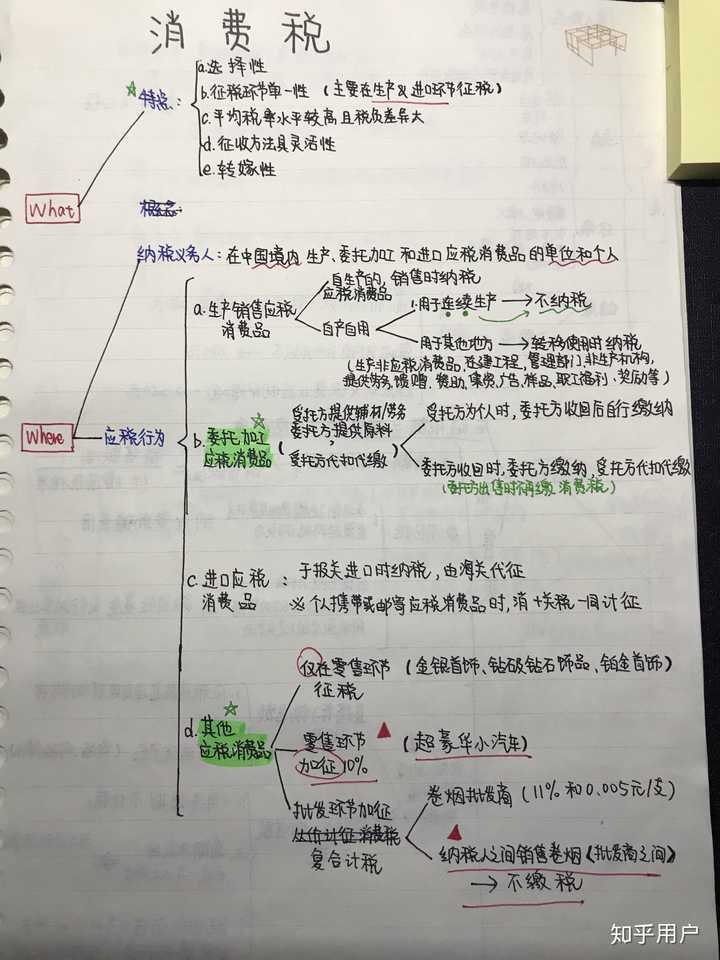 消费税
a.选择性
☆特点:
b.征税环节单一性 (主要在生产&进口环节征税)
c.平均税率水平较高且税负差异大
d.征收方法具灵活性
e.转嫁性
What
概念
纳税义务人:在中国境内生产、委托加工和进口应税消费品的单位和个人
自生产的,销售时纳税
应税消费品
a.生产销售应税
消费品
自产自用
1.用于连续生产→不纳税
用于其他地方→转移使用时纳税
(生产非应税消费品,在建工程,管理部门,非生产机构,
提供劳务,馈赠,赞助,集资,广告,样品,职工福利、奖励等)
Where
应税行为
☆
b.委托加工
应税消费品
(受托方提供辅材/劳务
委托方提供原料
,
受托方代扣代缴)
受托方为个人时,委托方收回后自行缴纳
委托方收回时,委托方缴纳,受托方代扣代缴
(委托方出售时不再缴消费税)
c.进口应税
消费品
:于报关进口时纳税,由海关代征
※个人携带或邮寄应税消费品时,消+关税一同计征
☆
d.其他
应税消费品
仅在零售环节
征税
(金银首饰、钻石及钻石饰品、铂金首饰)
零售环节
加征10%
(超豪华小汽车)
批发环节加征
从价计征消费税
复合计税
卷烟批发商(11%和0.005元/支)
纳税人之间销售卷烟(批发商之间)
→不缴税
知乎用户